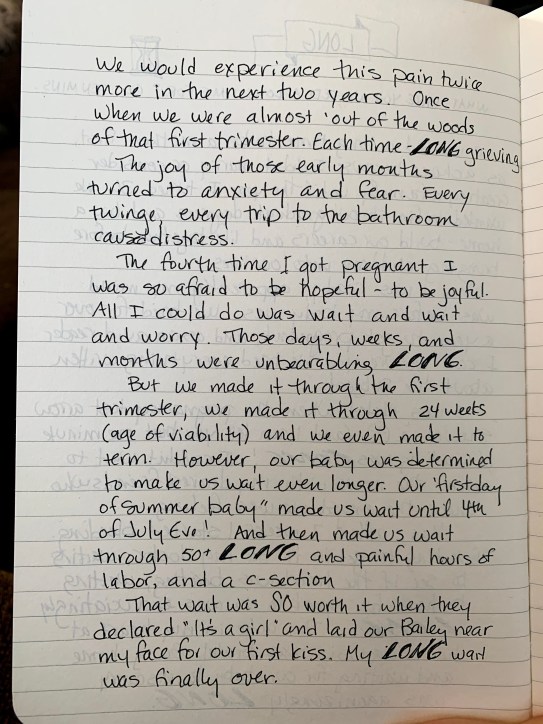 We would experience this pain twice
more in the next two years. Once
when we were almost 'out of the woods
of that first trimester. Each time - LONG grieving
The joy of those early months
turned to anxiety and fear. Every
twinge, every trip to the bathroom
caused distress.
The fourth time I got pregnant I
was so afraid to be hopeful - to be joyful.
All I could do was wait and wait
and worry. Those days, weeks, and
months were unbearabling LONG.
But we made it through the first
trimester, we made it through 24 weeks
(age of viability) and we even made it to
term. However, our baby was determined
to make us wait even longer. Our "first day
of summer baby" made us wait until 4th
of July Eve! And then made us wait
through 50+ LONG and painful hours of
labor, and a c-section
That wait was SO worth it when they
declared "It's a girl" and laid our Bailey near
my face for our first kiss. My LONG wait
was finally over.